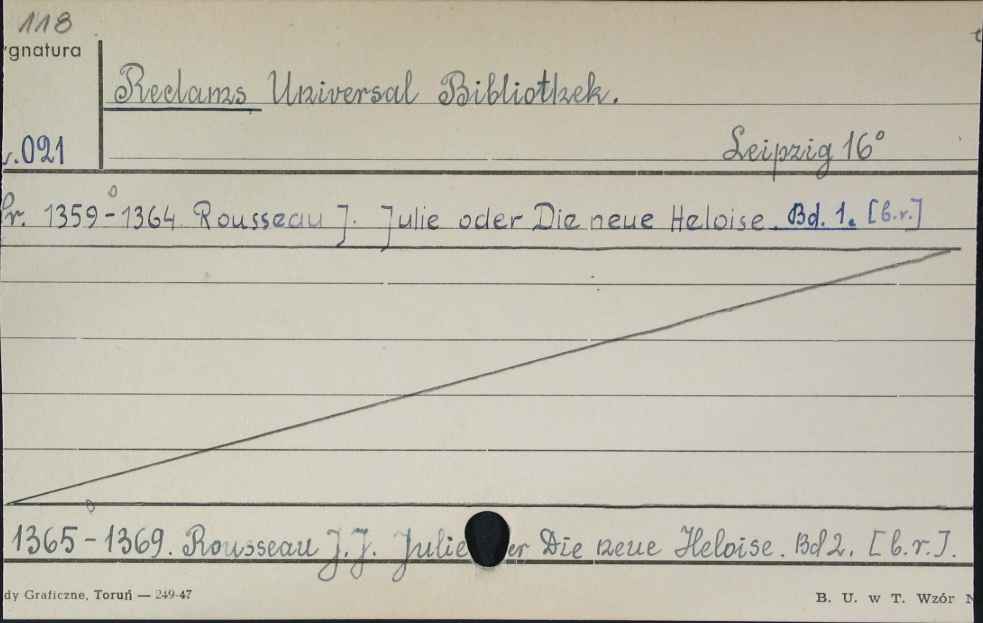 118
ygnatura
Reclams Universal Bibliothek.
.021
Leipzig 16°
Nr. 1359-1364 Rousseau J. Julie oder Die neue Heloise. Bd. 1. [b.r.]
1365-1369. Rousseau J.J. Julie er Die neue Heloise. Bd 2. [b.r.].
dy Graficzne, Toruń — 249-47
B. U. w T. Wzór N